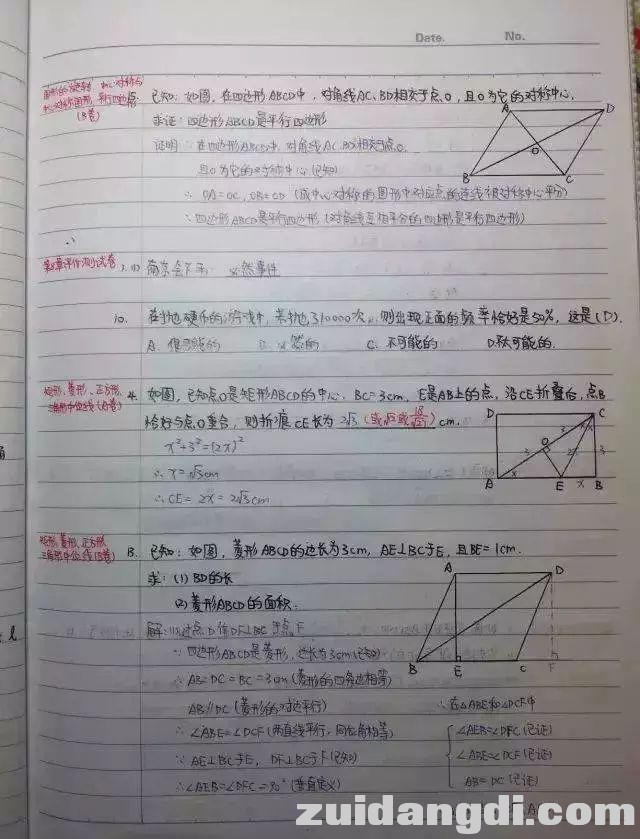 Date. No.
已知：如图，在四边形ABCD中，对角线AC、BD相交于点O，且O为它的对称中心.
求证：四边形ABCD是平行四边形
证明：在四边形ABCD中，对角线AC、BD相交于点O.
且O为它的对称中心(已知)
∴ OA=OC，OB=OD (成中心对称的图形中对应点的连线被对称中心平分)
∴四边形ABCD是平行四边形 (对角线互相平分的四边形是平行四边形)
A D
O
B C
南京会下雨. 必然事件
10. 在抛硬币的游戏中，若抛了10000次，则出现正面的频率恰好是50%，这是(D).
A. 很可能的 B. 必然的 C. 不可能的 D.不太可能的.
矩形、菱形、正方形、
三角形中位线(A卷)
4. 如图，已知点O是矩形ABCD的中心，BC=3cm，E是AB上的点，沿CE折叠后，点B
恰好与点O重合，则折痕CE长为2√3 (或√12或) cm.
x²+3²=(2x)²
∴ x=√3cm
∴ CE=2x=2√3cm
D C
O
3 3 2x 3
A E x B
矩形、菱形、正方形、
三角形中位线(B卷)
13. 已知：如图，菱形ABCD的边长为3cm，AE⊥BC于E，且BE=1cm.
求：(1) BD的长
(2)菱形ABCD的面积.
解：(1)过点D作DF⊥BC于点F
∵ 四边形ABCD是菱形，边长为3cm(已知)
∴ AB=DC=BC=3cm(菱形的四条边相等)
AB∥DC (菱形的对边平行)
∴ ∠ABE=∠DCF(两直线平行，同位角相等)
∵ AE⊥BC于E，DF⊥BC于F(已知)
∴ ∠AEB=∠DFC=90°(垂直定义)
A D
B E C F
∴ 在△ABE和△DCF中
∠AEB=∠DFC (已证)
∠ABE=∠DCF(已证)
AB=DC (已证)
zuidangdi.com